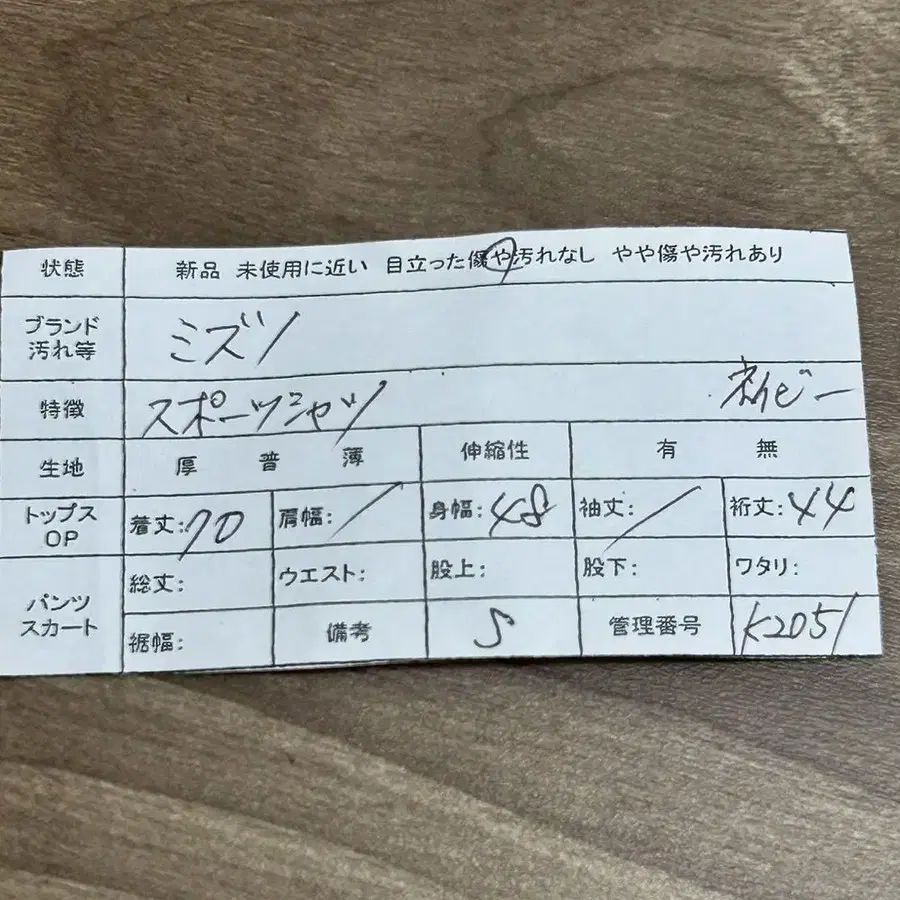 状態 新品 未使用に近い 目立った傷や汚れなし やや傷や汚れあり
ブランド
汚れ等 ミズノ
特徴 スポーツシャツ ネイビー
生地 厚 普 薄 伸縮性 有 無
トップス
OP 着丈:70 肩幅:/ 身幅:48 袖丈:/ 裄丈:44
パンツ
スカート 総丈: ウエスト: 股上: 股下: ワタリ:
裾幅: 備考 S 管理番号 K2051